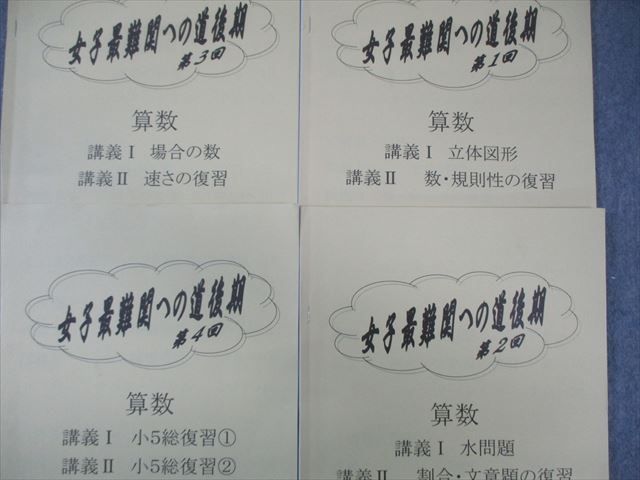 女子最難関への道後期
第3回
算数
講義Ⅰ 場合の数
講義Ⅱ 速さの復習
女子最難関への道後期
第1回
算数
講義Ⅰ 立体図形
講義Ⅱ 数・規則性の復習
女子最難関への道後期
第4回
算数
講義Ⅰ 小5総復習①
講義Ⅱ 小5総復習②
女子最難関への道後期
第2回
算数
講義Ⅰ 水問題
講義Ⅱ 割合・文章題の復習